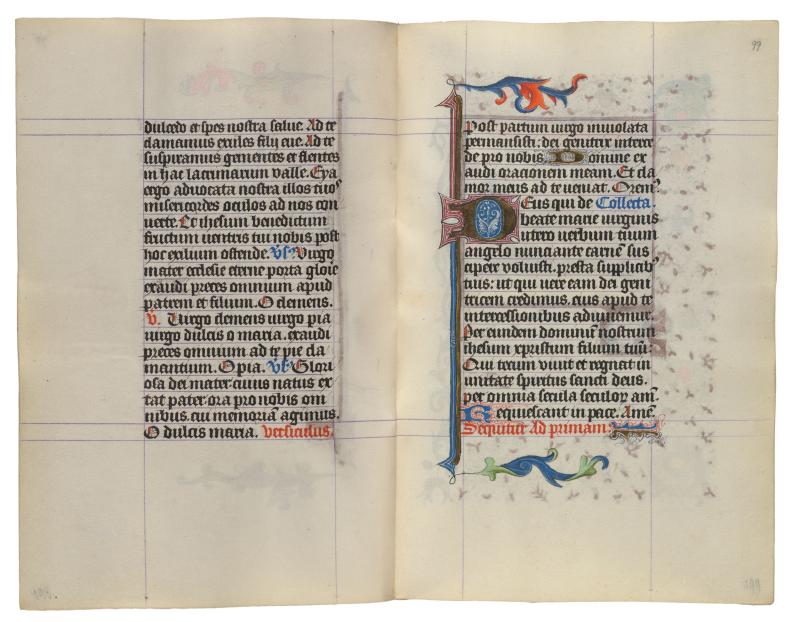 dulcedo et spes nostra salue. Ad te
clamamus exules filij eue. Ad te
suspiramus gementes et flentes
in hac lacrimarum valle. Eya
ergo aduocata nostra illos tuos
misericordes oculos ad nos con
uerte. Et ihesum benedictum
fructum uentris tui nobis post
hoc exilium ostende. Vs. Virgo
mater ecclesie eterne porta glorie
exaudi preces omnium apud
patrem et filium. O clemens.
V. Virgo clemens uirgo pia
uirgo dulcis o maria. exaudi
preces omnium ad te pie cla
mantium. O pia. Vs. Glori
osa dei mater cuius natus ex
tat pater ora pro nobis om
nibus. cui memoriā agimus.
O dulcis maria. versiculus.
99
Post partum uirgo inuiolata
permansisti: dei genitrix interce
de pro nobis Domine ex
audi orationem meam. Et cla
mor meus ad te ueniat. Orem⁹
Deus qui de Collecta.
beate marie uirginis
utero uerbum tuum
angelo nunciante carnē sus
cipere voluisti. presta supplicib⁹
tuis: ut qui uere eam dei geni
tricem credimus. eius apud te
intercessionibus adiuuemur.
Per eundem dominū nostrum
ihesum xpristum filium tuū:
Qui tecum viuit et regnat in
unitate spiritus sancti deus.
per omnia secula seculoꝝ am̄.
Requiescant in pace. Amē.
Sequitur Ad primam:
199